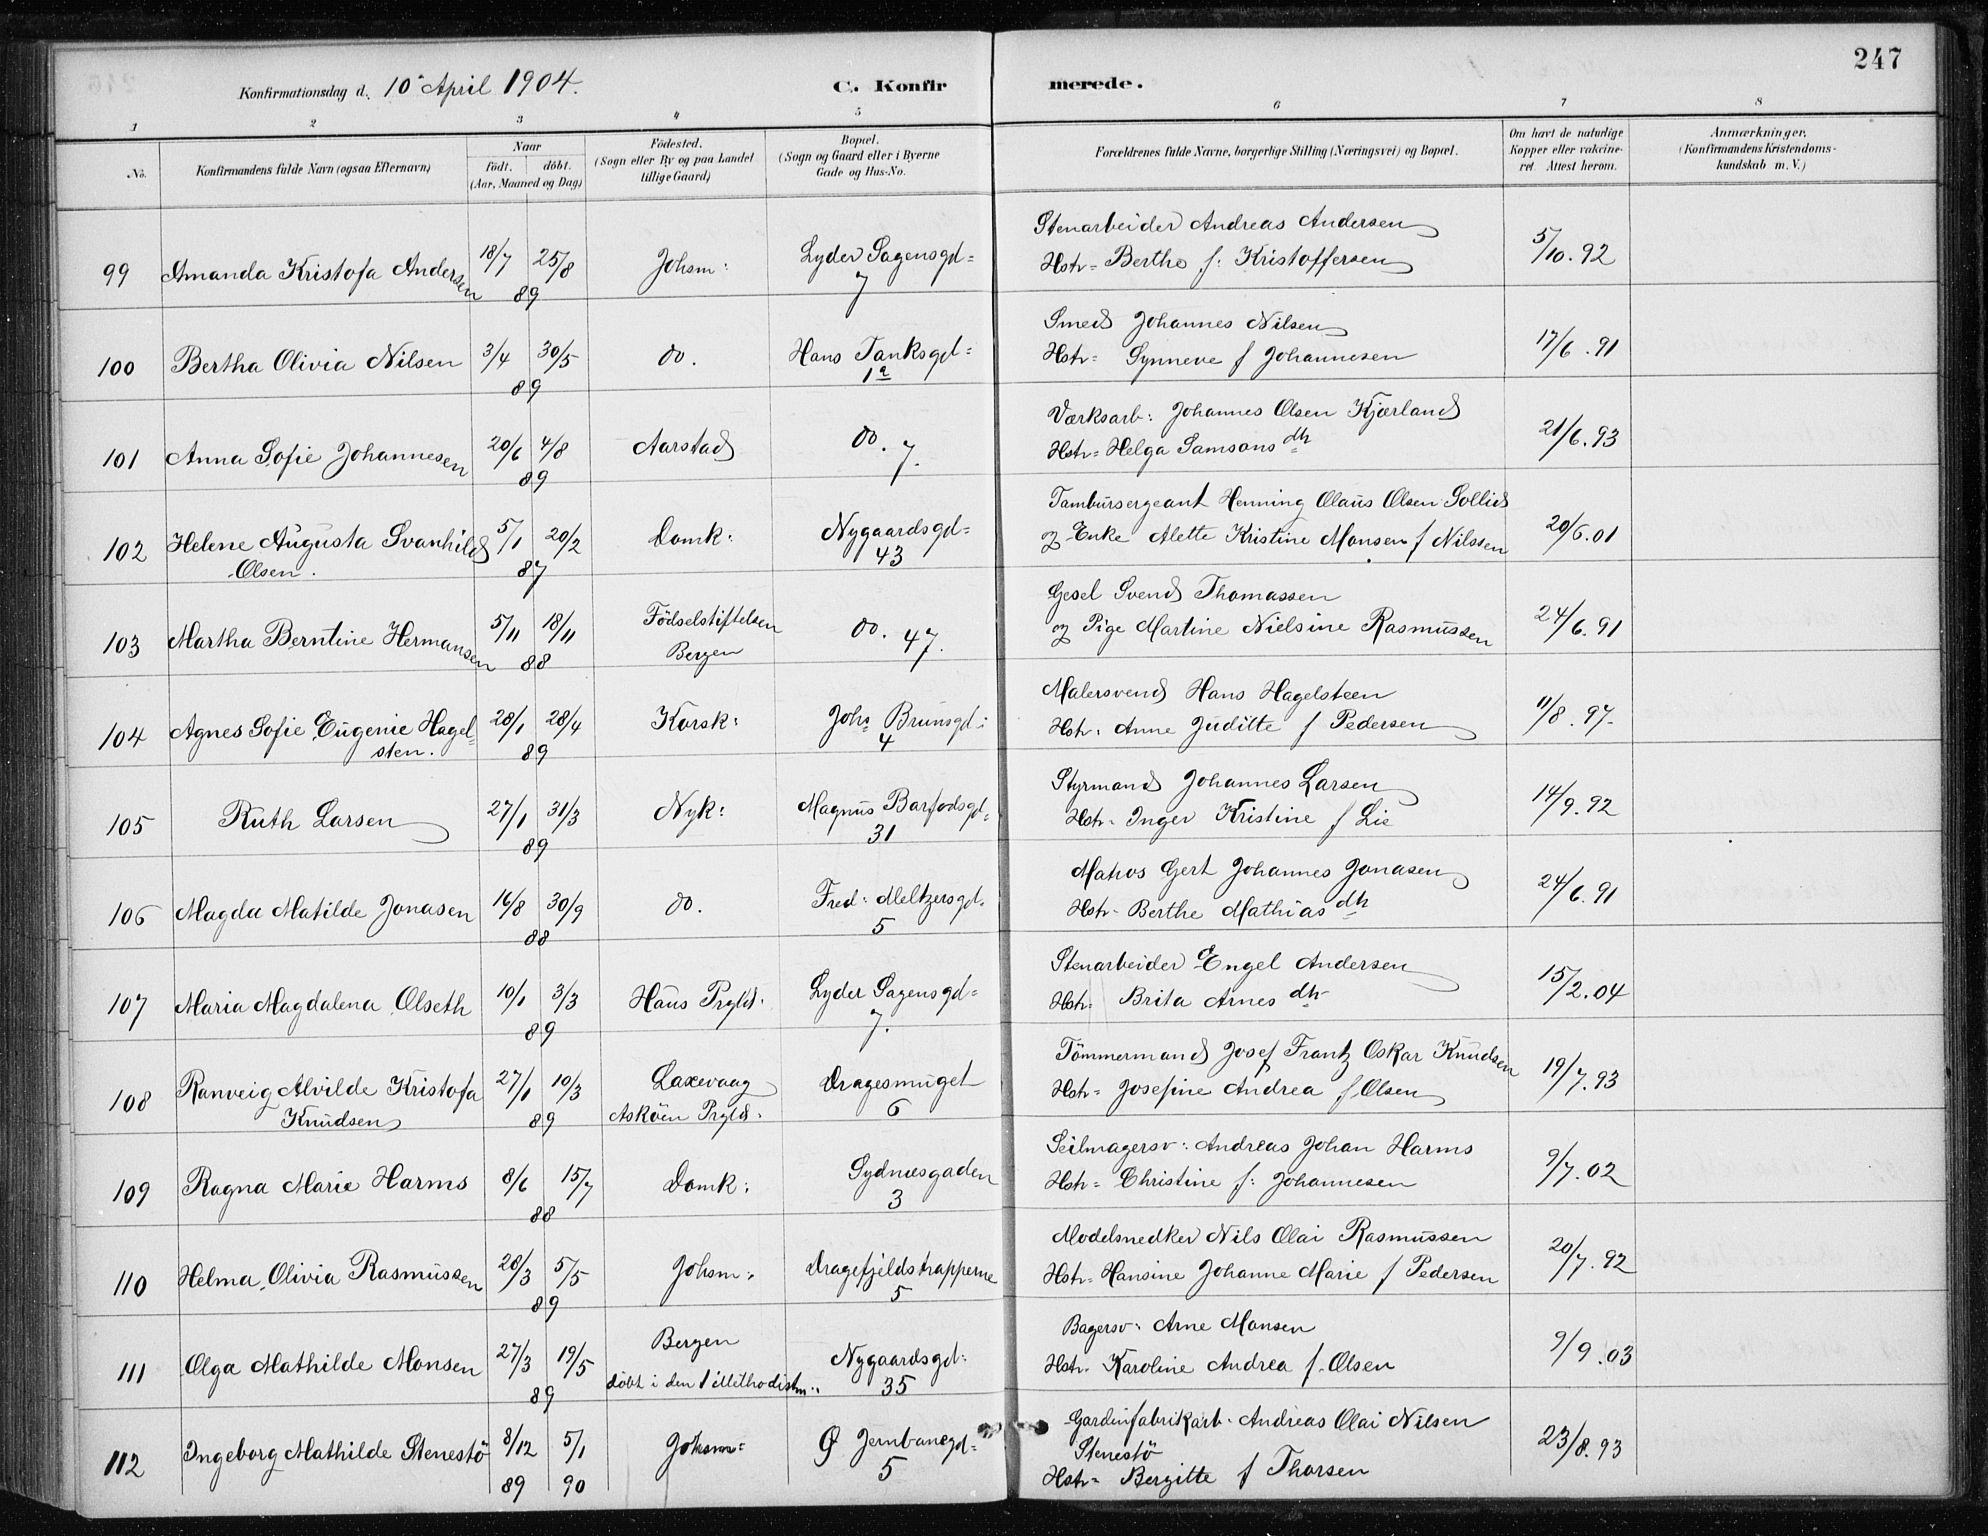 247
Konfirmationsdag d. 10 April 1904. C. Konfirmerede.
1 2 3 4 5 6 7 8
No. Konfirmandens fulde Navn (ogsaa Efternavn) Naar født. døbt. (Aar, Maaned og Dag) Födested. (Sogn eller By og paa Landet tillige Gaard) Bopæl. (Sogn og Gaard eller i Byerne Gade og Hus-No. Forældrenes fulde Navne, borgerlige Stilling (Næringsvei) og Bopæl. Om havt de naturlige Kopper eller vakcineret. Attest herom. Anmærkninger. (Konfirmandens Kristendomskundskab m. V.)
99 Amanda Kristofa Andersen 18/7 25/8 89 Johsm: Lyder Sagensgd= 7 Stenarbeider Andreas Andersen
Hstr= Berthe f: Kristoffersen 5/10.92
100 Bertha Olivia Nilsen 3/4 30/5 89 do. Hans Tanksgd= 1a Smed Johannes Nilsen
Hstr= Synneve f Johannesen 17/6.91
101 Anna Sofie Johannesen 20/6 4/8 89 Aarstad do. 7. Værksarb: Johannes Olsen Kjærland
Hstr= Helga Samsonsdtr 21/6.93
102 Helene Augusta Svanhild Olsen. 5/1 20/2 87 Domk: Nygaardsgd= 43 Tamboursergeant Henning Olaus Olsen Sollid
og Enke Alette Kristine Monsen f Nilssen 20/6.01
103 Martha Berntine Hermansen 5/11 18/11 88 Födselstiftelsen Bergen do. 47. Gesel Svend Thomassen
og Pige Martine Nielsine Rasmussen 24/6.91
104 Agnes Sofie Eugenie Hagelsten. 28/1 28/4 89 Korsk: Johs Brunsgd: 4 Malersvend Hans Hagelsteen
Hstr. Anne Juditte f Pedersen 11/8.97.
105 Ruth Larsen 27/1 31/3 89 Nyk: Magnus Barfodsgd= 31 Styrmand Johannes Larsen
Hstr. Inger Kristine f Lie 14/9.92
106 Magda Matilde Jonasen 16/8 30/9 88 do. Fred: Meltzersgd. 5 Matros Gert Johannes Jonasen
Hstr. Berthe Mathiasdtr 24/6.91
107 Maria Magdalena Olseth 10/1 3/3 89 Haus Prgld. Lyder Sagensgd= 7. Stenarbeider Engel Andersen
Hstr. Brita Arnesdtr 15/2.04
108 Ranveig Alvilde Kristofa Knudsen 27/1 10/3 89 Laxevaag Askøen Prgld. Dragesmuget 6 Tömmermand Josef Frantz Oskar Knudsen
Hstr= Josefine Andrea f Olsen 19/7.93
109 Ragna Marie Harms 8/6 15/7 88 Domk: Sydnæsgaden 3 Seilmagersv: Andreas Johan Harms
Hstr= Christine f: Johannesen 9/7.02
110 Helma Olivia Rasmussen 28/3 5/5 89 Johsm: Dragefjeldstrapperne 5 Modelsnedker Nils Olai Rasmussen
Hstr= Hansine Johanne Marie f Pedersen 20/7.92
111 Olga Mathilde Monsen 27/3 19/5 89 Bergen döbt i den Methodistm. Nygaardsgd: 35 Bagersv: Arne Monsen
Hstr. Karoline Andrea f. Olsen 9/9.03
112 Ingeborg Mathilde Stenestö 8/12 89 5/1 90 Johsm= Ø Jernbanegd= 5 Gardinfabrikarb. Andreas Olai Nilsen
Stenestö
Hstr= Bergitte f Thorsen 23/8.93